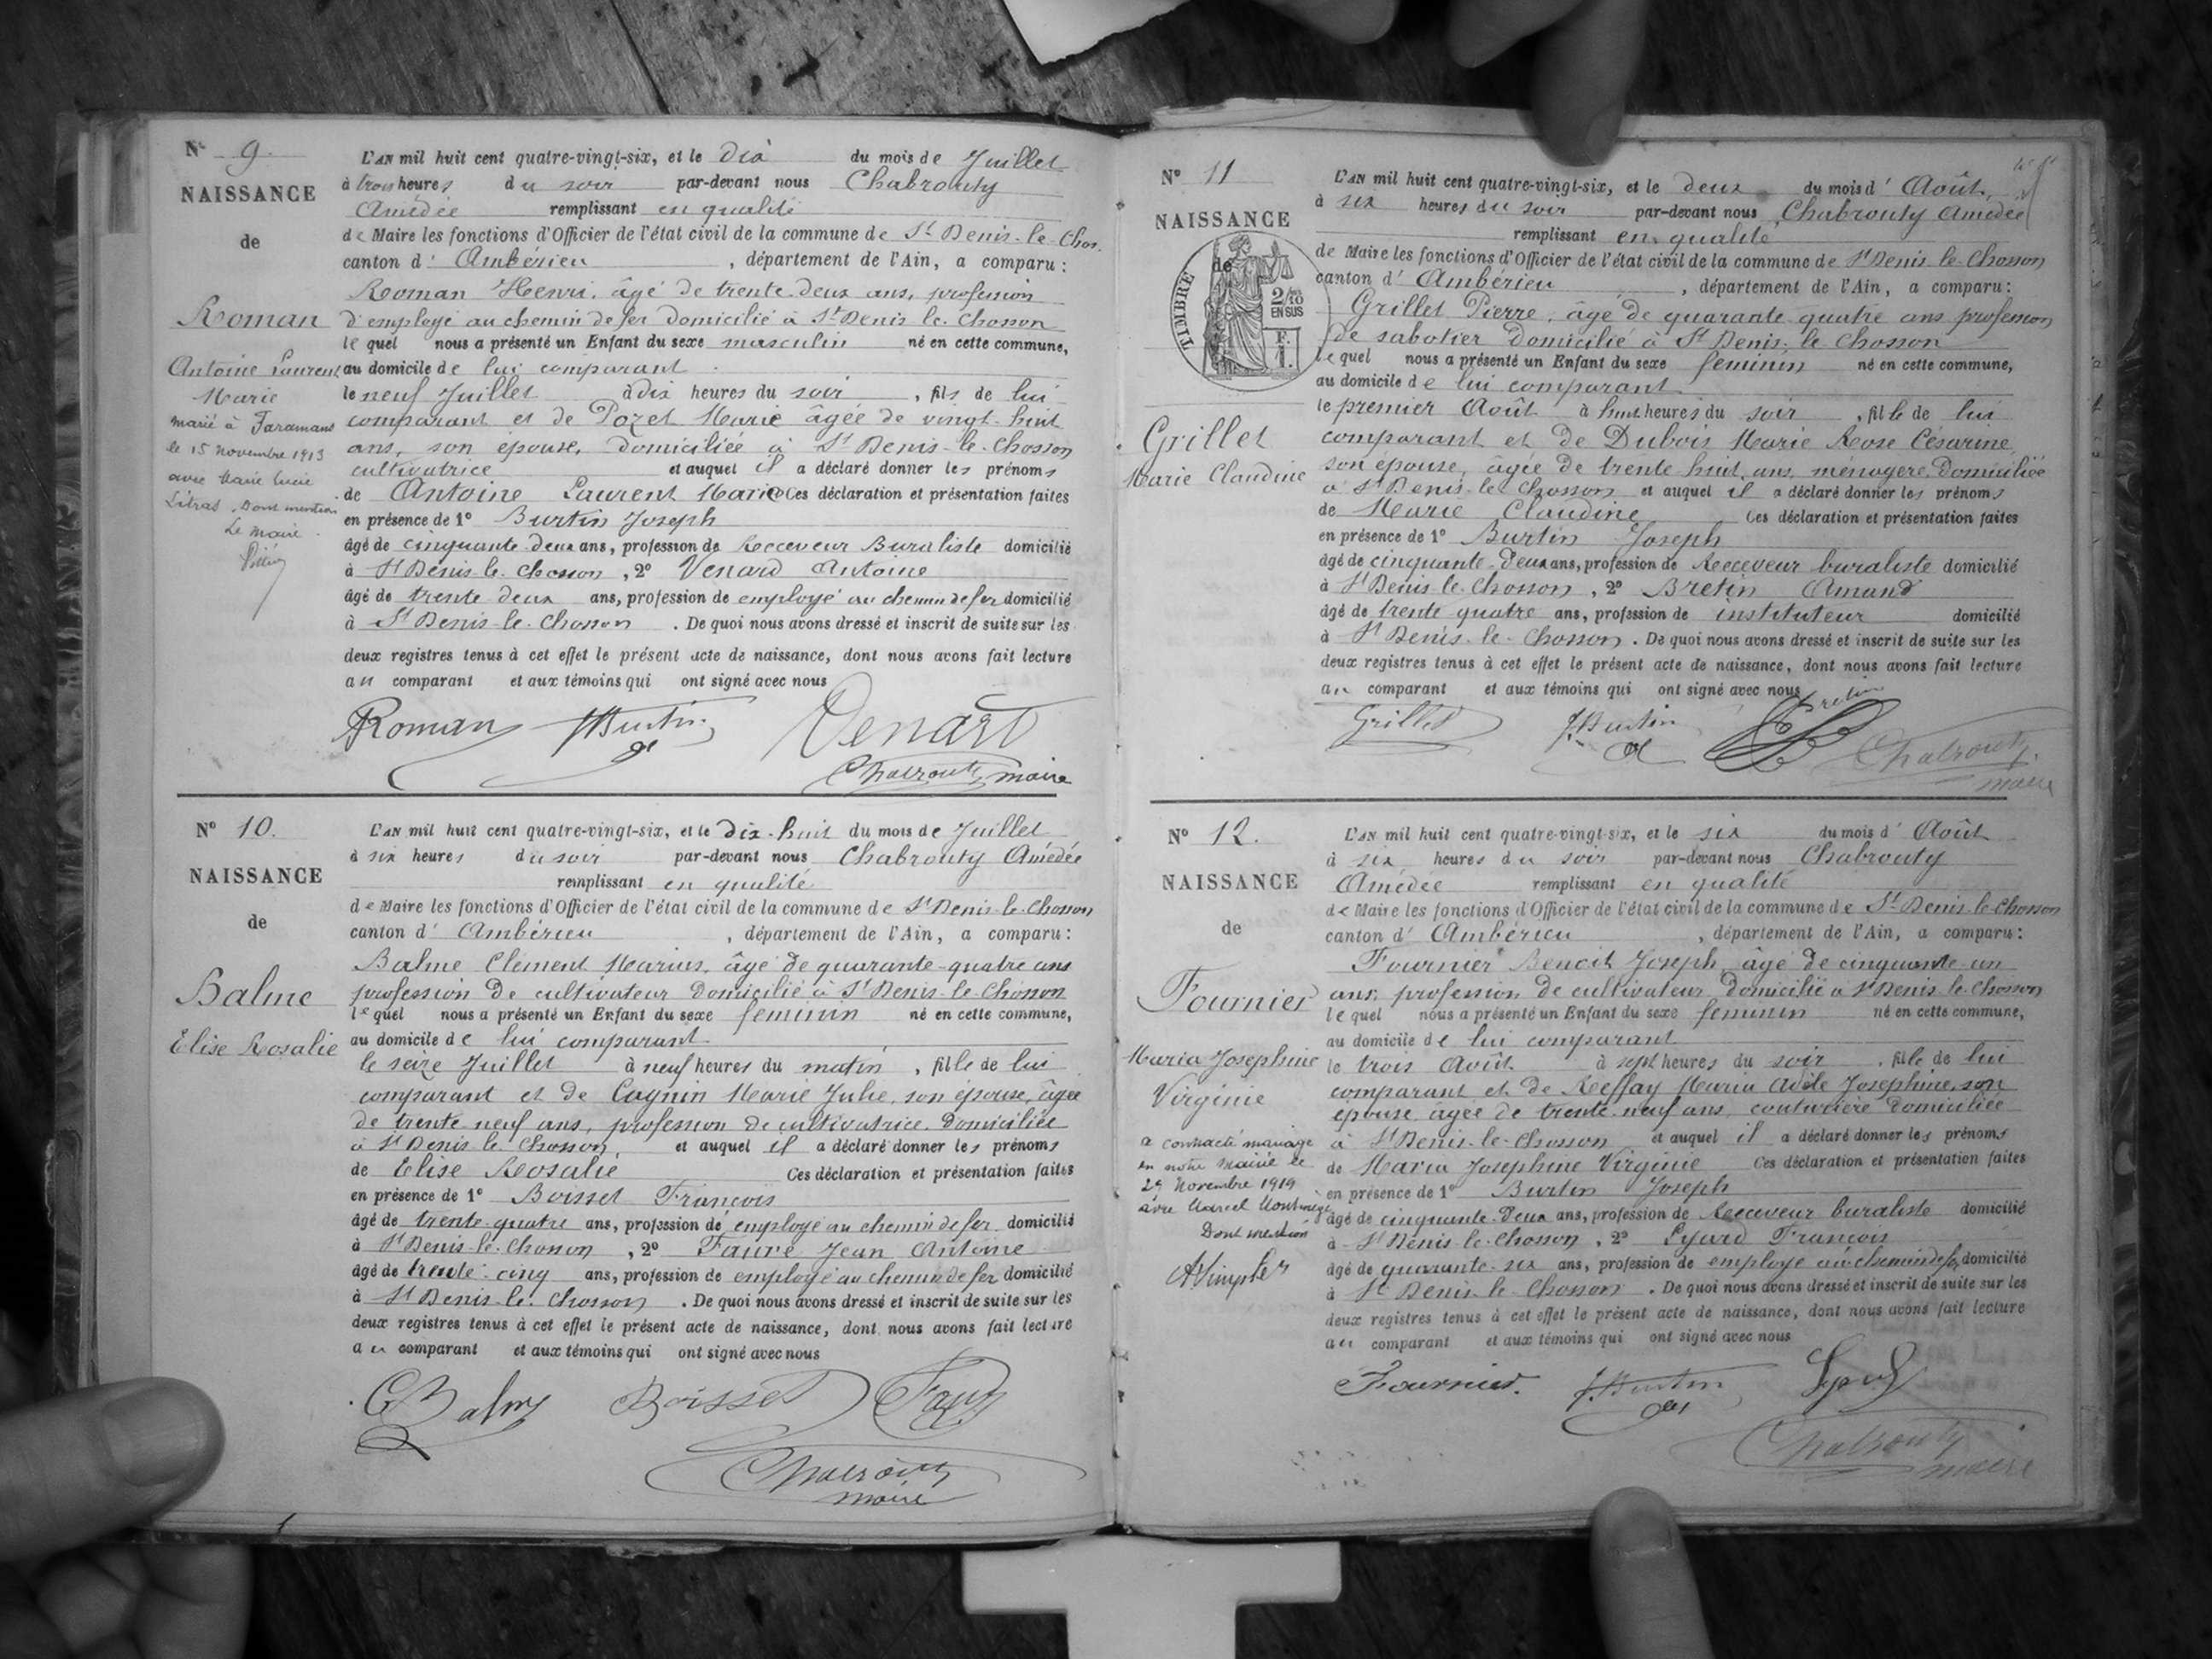 N° 9.
NAISSANCE
de
Roman
Antoine Laurent
Marie
marié à Faramans
le 15 Novembre 1913
avec Marie Lucie
Litras. Dont mention
Le Maire
L'AN mil huit cent quatre-vingt-six, et le dix du mois de Juillet
à trois heures du soir par-devant nous Chabrouty
Amédée remplissant en qualité
de Maire les fonctions d'Officier de l'état civil de la commune de St Denis-le-Chos.
canton d' Ambérieu, département de l'Ain, a comparu:
Roman Henri, âgé de trente-deux ans, profession
d'employé au chemin de fer domicilié à St Denis le Chosson
lequel nous a présenté un Enfant du sexe masculin né en cette commune,
au domicile de lui comparant
le neuf Juillet à dix heures du soir, fils de lui
comparant et de Pozet Marie âgée de vingt-huit
ans, son épouse, domiciliée à St Denis-le-Chosson
cultivatrice et auquel il a déclaré donner les prénoms
de Antoine Laurent Marie Ces déclaration et présentation faites
en présence de 1° Burtin Joseph
âgé de cinquante-deux ans, profession de Receveur Buraliste domicilié
à St Denis-le-Chosson, 2° Venard Antoine
âgé de trente deux ans, profession de employé au chemin de fer domicilié
à St Denis-le-Chosson. De quoi nous avons dressé et inscrit de suite sur les
deux registres tenus à cet effet le présent acte de naissance, dont nous avons fait lecture
au comparant et aux témoins qui ont signé avec nous
Roman JBurtin Venard
Chabrouty maire
N° 10.
NAISSANCE
de
Balme
Elise Rosalie
L'AN mil huit cent quatre-vingt-six, et le dix-huit du mois de Juillet
à six heures du soir par-devant nous Chabrouty Amédée
remplissant en qualité
de Maire les fonctions d'Officier de l'état civil de la commune de St Denis-le-Chosson
canton d' Ambérieu, département de l'Ain, a comparu:
Balme Clément Marius, âgé de quarante-quatre ans
profession de cultivateur domicilié à St Denis-le-Chosson
lequel nous a présenté un Enfant du sexe féminin né en cette commune,
au domicile de lui comparant
le seize Juillet à neuf heures du matin, fille de lui
comparant et de Cagnin Marie Julie, son épouse, âgée
de trente neuf ans, profession de cultivatrice, domiciliée
à St Denis le Chosson et auquel il a déclaré donner les prénoms
de Elise Rosalie Ces déclaration et présentation faites
en présence de 1° Boisset François
âgé de trente-quatre ans, profession de employé au chemin de fer domicilié
à St Denis-le-Chosson, 2° Faure Jean Antoine
âgé de trente-cinq ans, profession de employé au chemin de fer domicilié
à St Denis-le-Chosson. De quoi nous avons dressé et inscrit de suite sur les
deux registres tenus à cet effet le présent acte de naissance, dont nous avons fait lecture
au comparant et aux témoins qui ont signé avec nous
CBalme Boisset Faure
Chabrouty
maire
N° 11
NAISSANCE
de
TIMBRE
2/10 EN SUS
F. 1.
Grillet
Marie Claudine
L'AN mil huit cent quatre-vingt-six, et le deux du mois d' Août
à six heures du soir par-devant nous Chabrouty Amédée
remplissant en qualité
de Maire les fonctions d'Officier de l'état civil de la commune de St Denis-le-Chosson
canton d' Ambérieu, département de l'Ain, a comparu:
Grillet Pierre, âgé de quarante-quatre ans profession
de sabotier domicilié à St Denis-le-Chosson
lequel nous a présenté un Enfant du sexe féminin né en cette commune,
au domicile de lui comparant
le premier Août à huit heures du soir, fille de lui
comparant et de Dubois Marie Rose Césarine
son épouse, âgée de trente huit ans, ménagère, domiciliée
à St Denis-le-Chosson et auquel il a déclaré donner les prénoms
de Marie Claudine Ces déclaration et présentation faites
en présence de 1° Burtin Joseph
âgé de cinquante-deux ans, profession de Receveur buraliste domicilié
à St Denis-le-Chosson, 2° Bretin Amand
âgé de trente quatre ans, profession de instituteur domicilié
à St Denis-le-Chosson. De quoi nous avons dressé et inscrit de suite sur les
deux registres tenus à cet effet le présent acte de naissance, dont nous avons fait lecture
au comparant et aux témoins qui ont signé avec nous
Grillet J.Burtin Bretin Chabrouty
maire
N° 12.
NAISSANCE
de
Fournier
Maria Josephine
Virginie
a contracté mariage
en notre Mairie le
29 Novembre 1919
avec Marcel
Dont mention
L'AN mil huit cent quatre-vingt-six, et le six du mois d' Août
à six heures du soir par-devant nous Chabrouty
Amédée remplissant en qualité
de Maire les fonctions d'Officier de l'état civil de la commune de St Denis-le-Chosson
canton d' Ambérieu, département de l'Ain, a comparu:
Fournier Benoit Joseph âgé de cinquante-un
ans, profession de cultivateur domicilié à St Denis-le-Chosson
lequel nous a présenté un Enfant du sexe féminin né en cette commune,
au domicile de lui comparant
le trois Août à sept heures du soir, fille de lui
comparant et de Reffay Maria Adèle Josephine, son
épouse, âgée de trente-neuf ans, couturière domiciliée
à St Denis-le-Chosson et auquel il a déclaré donner les prénoms
de Maria Josephine Virginie Ces déclaration et présentation faites
en présence de 1° Burtin Joseph
âgé de cinquante-deux ans, profession de Receveur buraliste domicilié
à St Denis-le-Chosson, 2° Lyard François
âgé de quarante-six ans, profession de employé au chemin de fer domicilié
à St Denis-le-Chosson. De quoi nous avons dressé et inscrit de suite sur les
deux registres tenus à cet effet le présent acte de naissance, dont nous avons fait lecture
au comparant et aux témoins qui ont signé avec nous
Fournier. J.Burtin Lyard
Chabrouty
maire